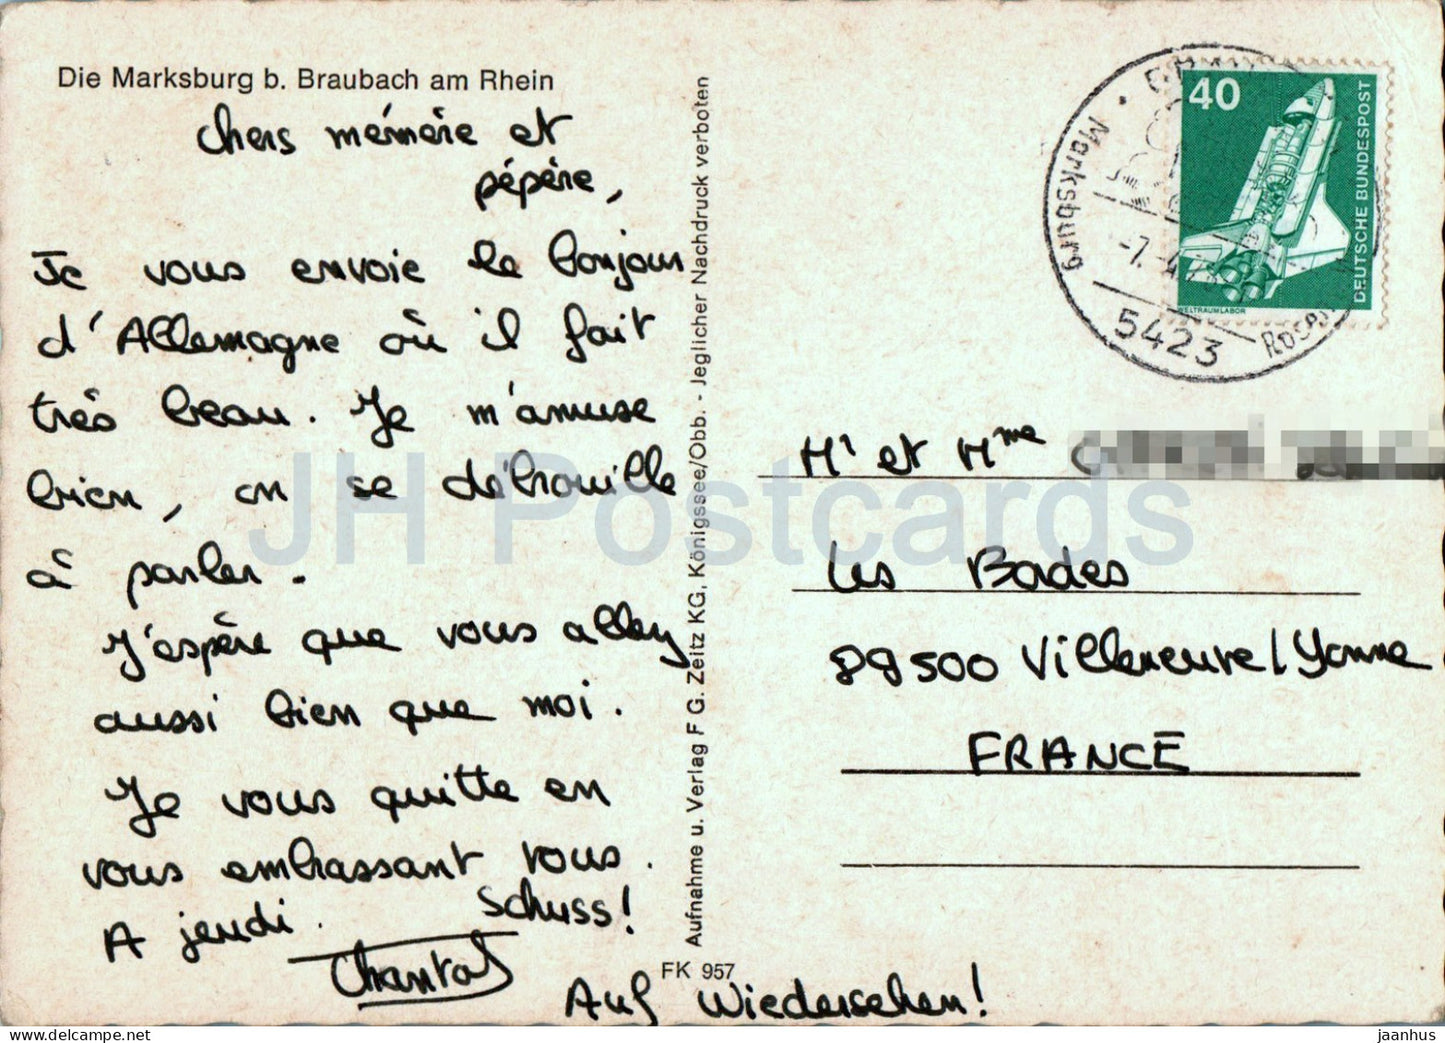 Die Marksburg b. Braubach am Rhein
Chers mémère et
pépère,
Je vous envoie le bonjour
d'Allemagne où il fait
très beau. Je m'amuse
bien, on se débrouille
à parler.
J'espère que vous allez
aussi bien que moi.
Je vous quitte en
vous embrassant tous.
A jeudi. Schuss!
Chantal
Auf Wiedersehen!
FK 957
Aufnahme u. Verlag F G. Zeitz KG, Königssee/Obb. - Jeglicher Nachdruck verboten
Marksburg
-7.-4.
5423
40
DEUTSCHE BUNDESPOST
WELTRAUMLABOR
Mr et Mme
Les Bodes
89500 Villeneuve/Yonne
FRANCE
JH Postcards
jaanhus € www.hipstamp.com